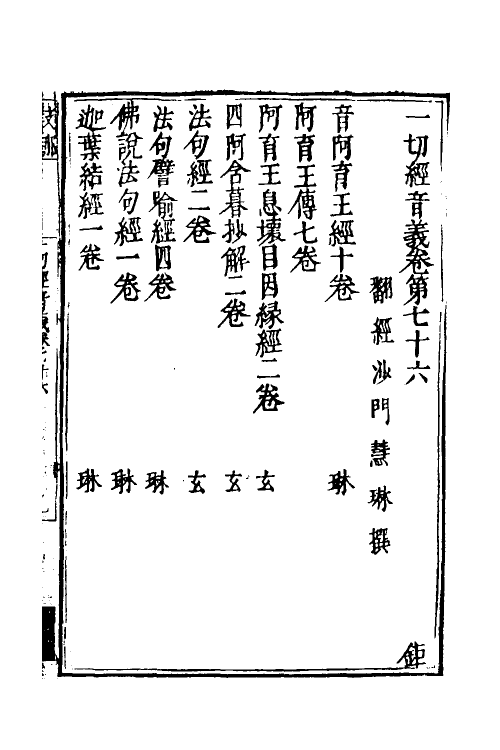 一切經音義卷第七十六　鉅
翻經沙門慧琳撰
音阿育王經十卷　琳
阿育王傳七卷
阿育王息壞目因緣經二卷　玄
四阿含暮抄解二卷　玄
法句經二卷　玄
法句譬喻經四卷　琳
佛說法句經一卷　琳
迦葉結經一卷　琳